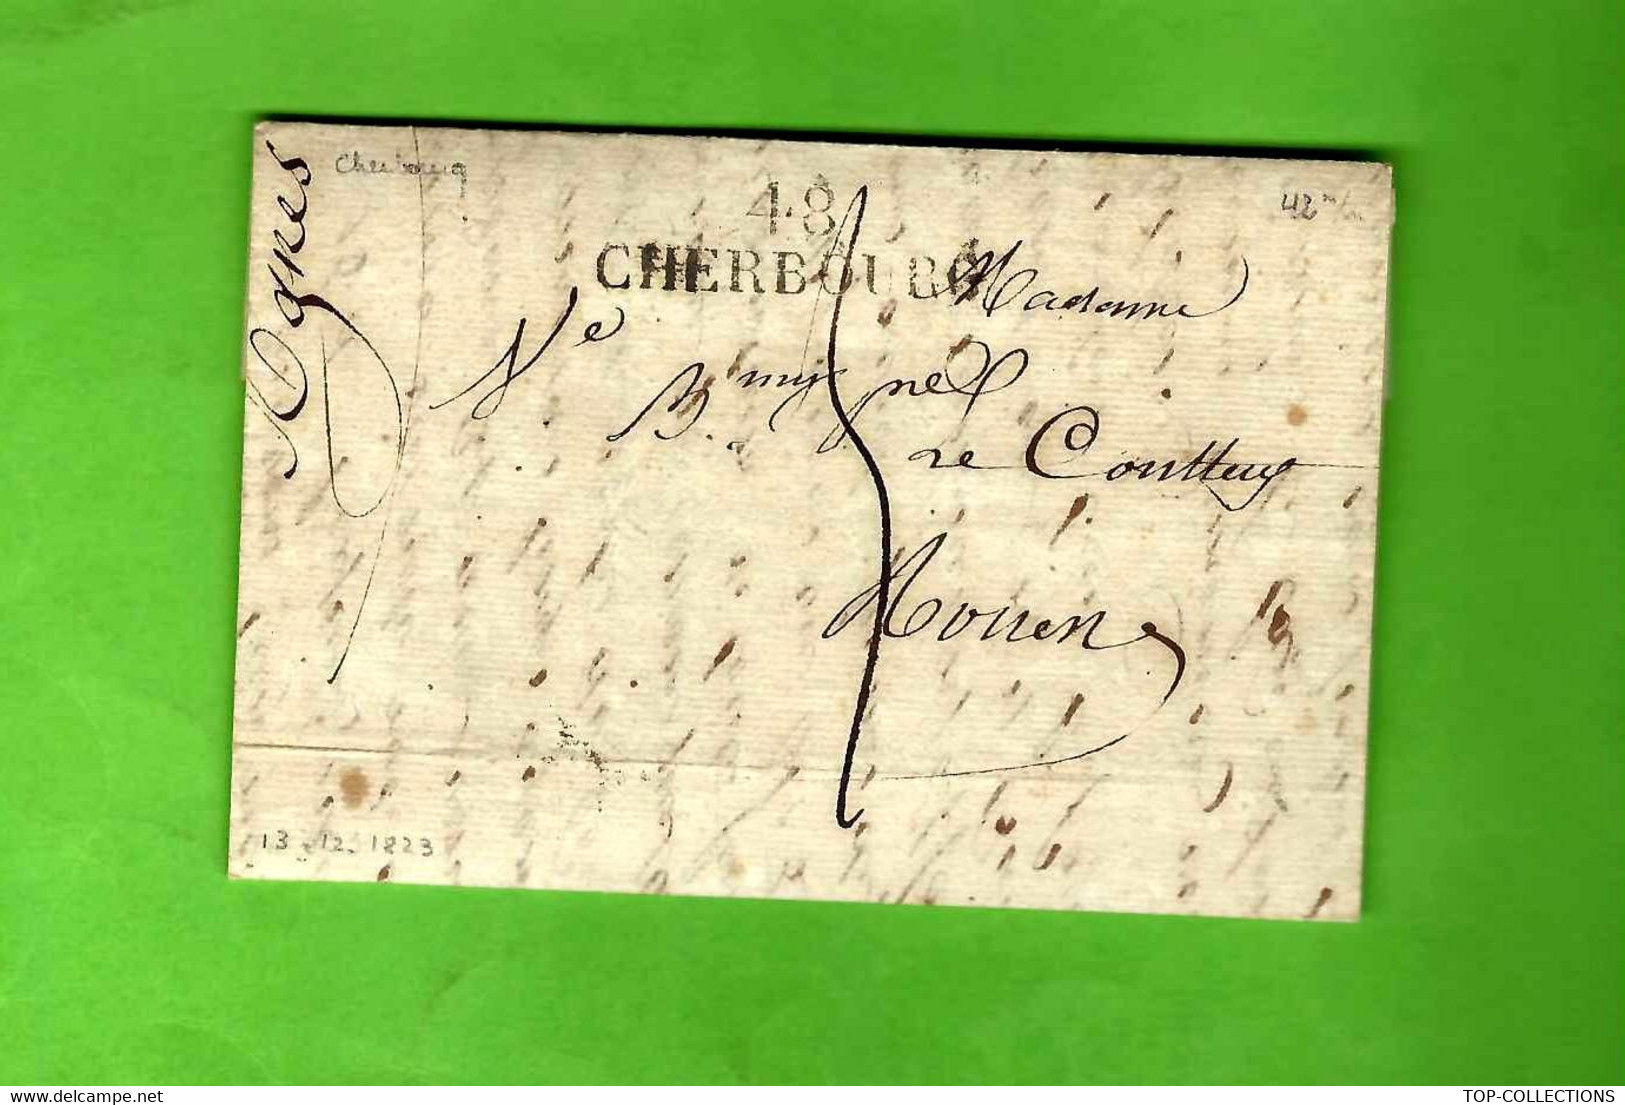 Cherbourg
48
CHERBOURG
42 m/m
Madame
Ve Bmy
Le Coutteux
Rouen
13-12-1823
www.delcampe.net
TOP-COLLECTIONS